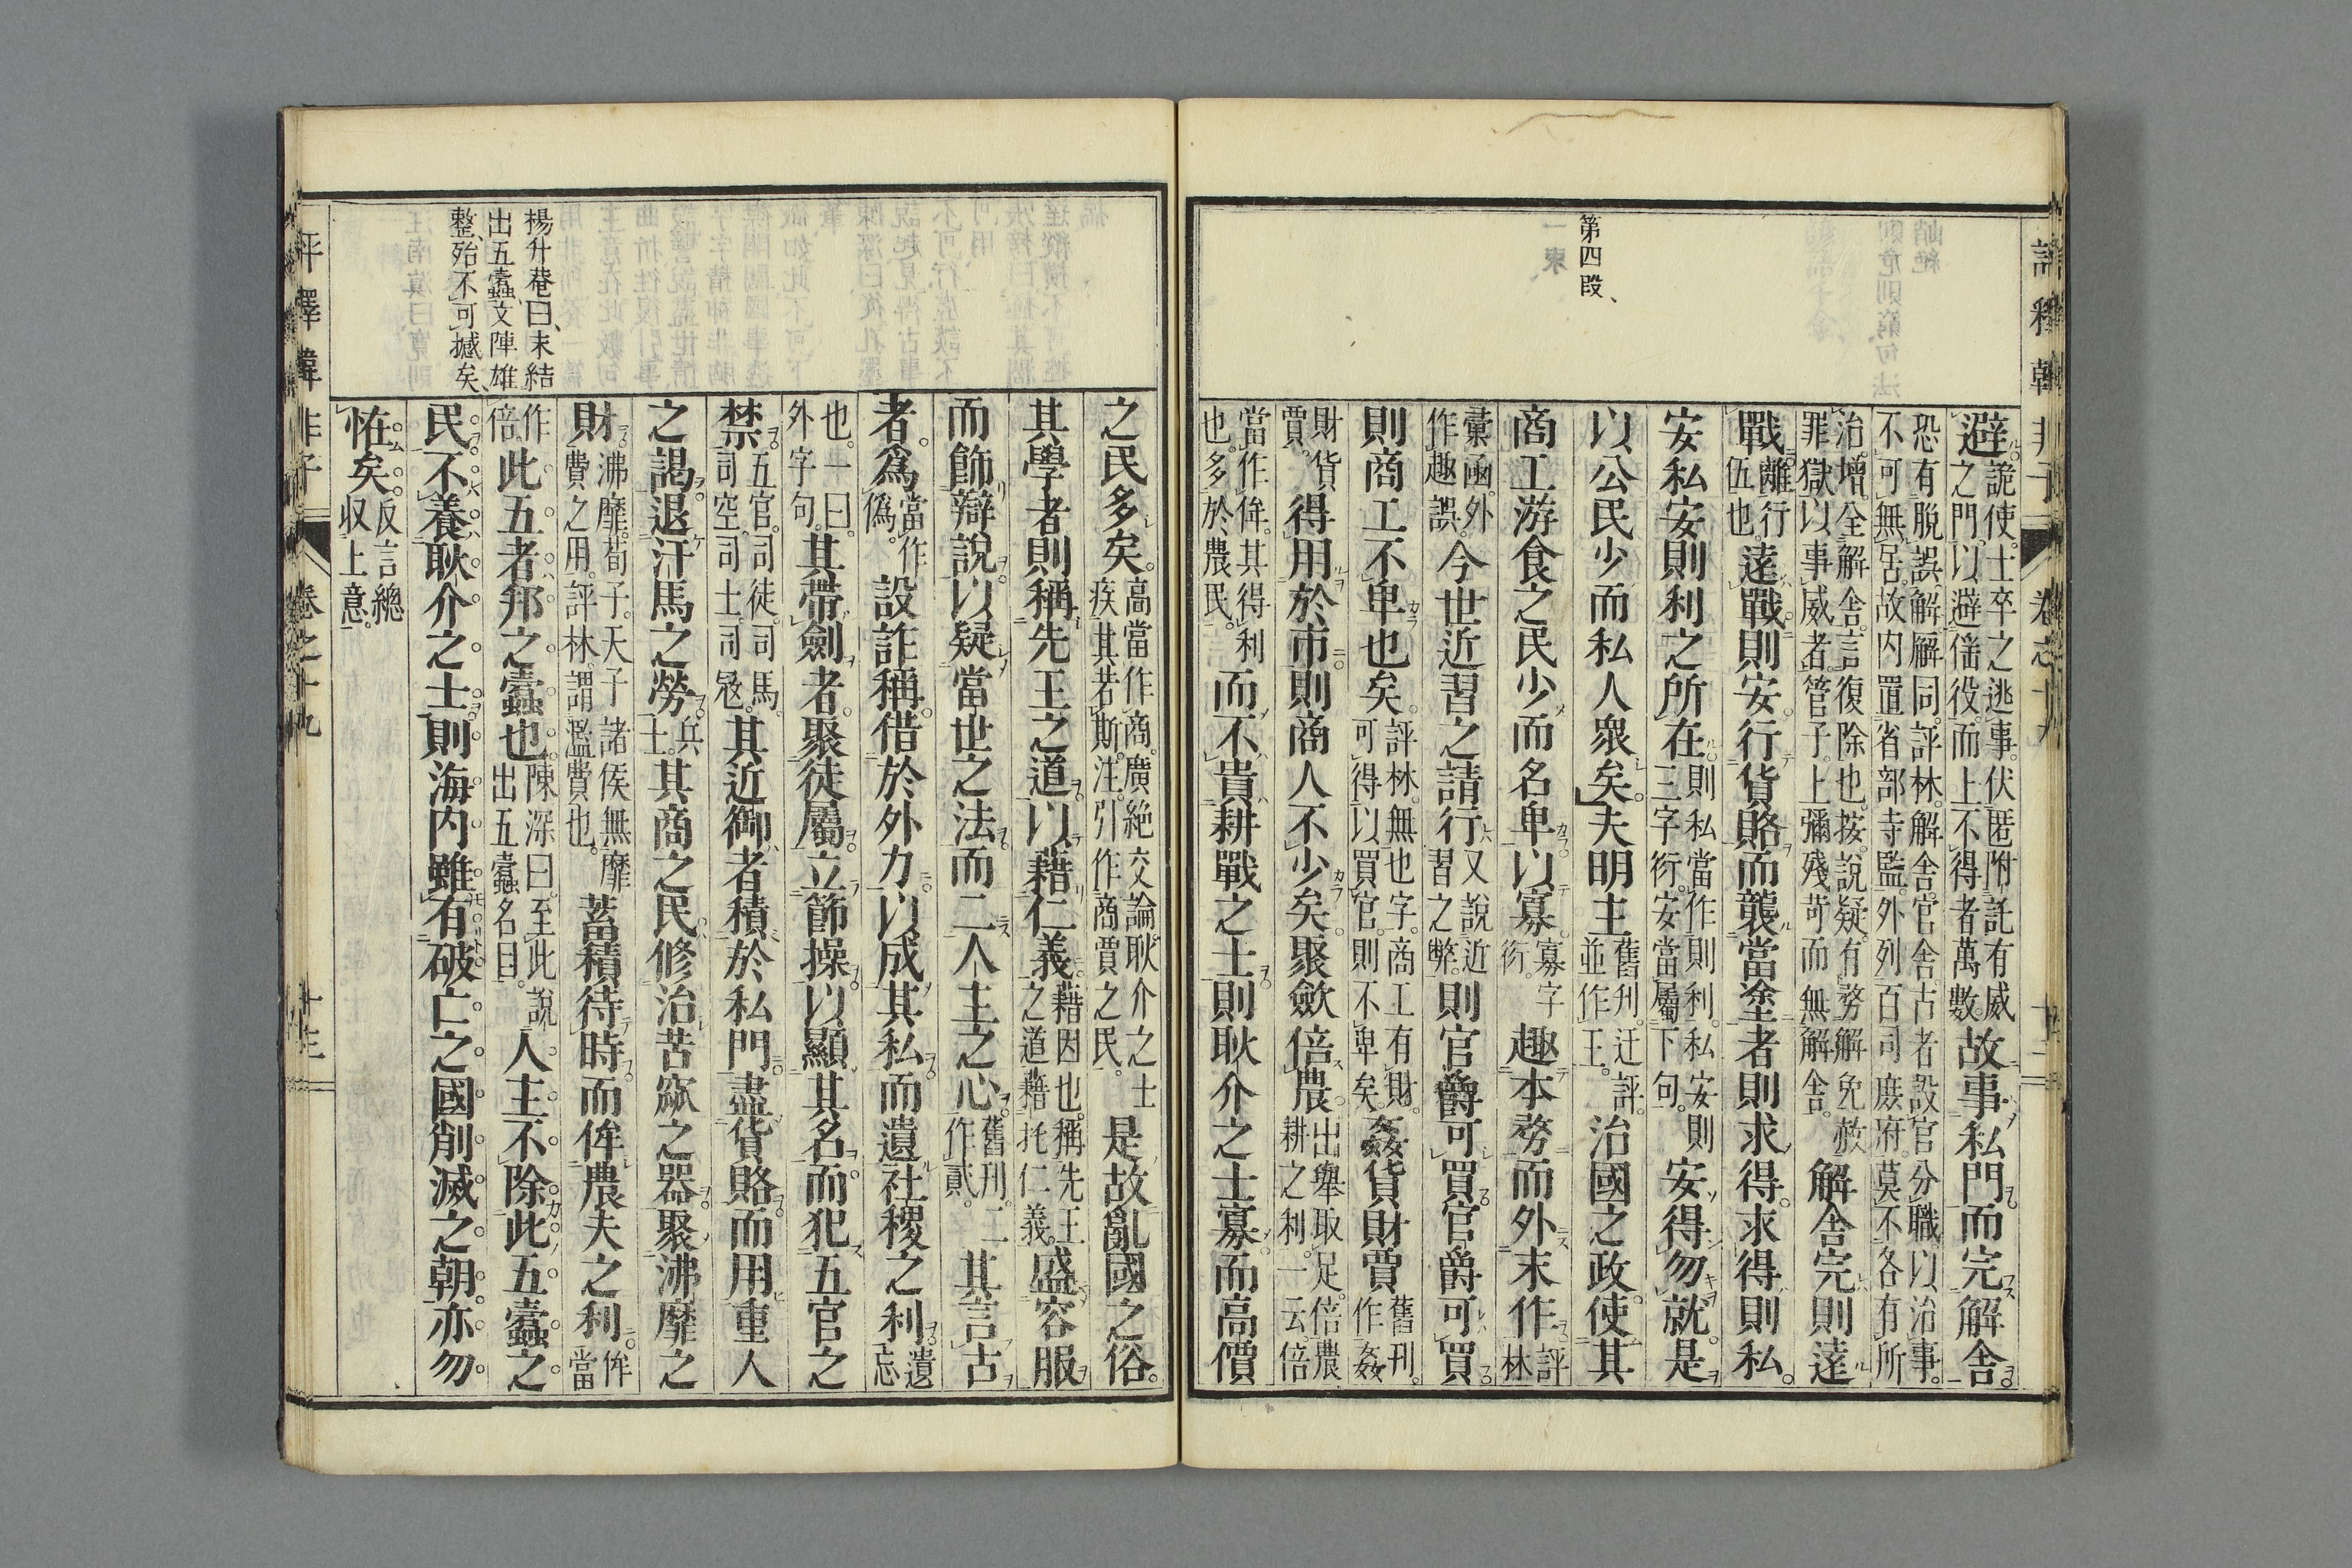 第四段、
避。詭使。士卒之逃事。伏匿附託有威之門。以避徭役。而上不得者萬數。故事私門。而完解舍。
恐有脫誤解廨同。評林。解舍。官舍。古者設官分職。以治事。不可無居。故内置省部寺監。外列百司庶府。莫不各有所
治。增。全解舍。言復除也。按。說疑。有務解免赦罪獄以事威者。管子。上彌殘苛而無解舍。解舍完則遠
戰。離行伍也。遠戰則安。行貨賂而襲當塗者則求得。求得則私
安私安則利之所在。則私當作則利。私安則三字衍。安當屬下句。安得勿就。是
以公民少而私人衆矣。夫明主舊刊。迂評。並作王。治國之政。使其
商工游食之民少而名卑。以寡。寡字衍。趣本務而外末作。評林
彙函。外作趣誤。今世近習之請行。又說近習之弊。則官爵可買。官爵可買。
則商工不卑也矣。評林。無也字。商工有財。可得以買官。則不卑矣。姦貨財賈舊刊。作姦
財貨賈。得用於市。則商人不少矣。聚斂倍農。出舉取足。倍農耕之利。一云。倍
當作侔。其得利也。多於農民。而不貴耕戰之士。則耿介之士寡。而高價
楊升菴曰、末結
出五蠧、文陣雄
整、殆不可撼矣、
之民多矣。高當作商。廣絶交論。耿介之士疾其若斯。注。引作商賈之民。是故亂國之俗。
其學者則稱先王之道。以藉仁義。藉因也。稱先王之道藉托仁義。盛容服
而飾辯說。以疑當世之法。而二人主之心。舊刊。二作貳。其言古
者。爲當作僞。設詐稱。借於外力。以成其私。而遺社稷之利。遺忘
也。一曰。外字句。其帶劍者。聚徒屬。立節操。以顯其名。而犯五官之
禁。五官。司徒。司馬。司空。司士。司冦。其近御者積於私門。盡貨賂。而用重人
之謁。退汗馬之勞。兵士。其商之民。修治苦窳之器。聚沸靡之
財。沸靡。荀子。天子諸侯無靡費之用。評林。謂濫費也。蓄積待時。而侔農夫之利。侔當
作倍。此五者。邦之蠧也。陳深曰。至此說出五蠧名目。人主不除此五蠧之
民。不養耿介之士。則海内雖有破亡之國。削滅之朝。亦勿
恠矣。反言總収上意。
卷之十九